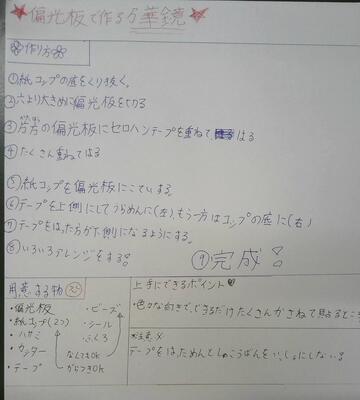 ★偏光板で作る万華鏡★
作り方
①紙コップの底をくり抜く。
②穴より大きめに偏光板を切る
③片方の偏光板にセロハンテープを重ねてはる
④たくさん重ねてはる
⑤紙コップを偏光板にこていする。
⑥テープを上側にしてうらめんに(左)、もう一方はコップの底に(右)
⑦テープをはった方が下側になるようにする。
⑧いろいろアレンジをする!
⑨完成!
用意する物
・偏光板
・紙コップ(2つ)
・ハサミ
・カッター
・テープ
・ビーズ
・シール
・ふくろ
なんでもOK
からつきOK
上手にできるポイント♥
・色々な向きで、できるだけたくさんかさねて貼るところ
※注意※
テープをはっためんとしゃこうばんをいっしょにしない!